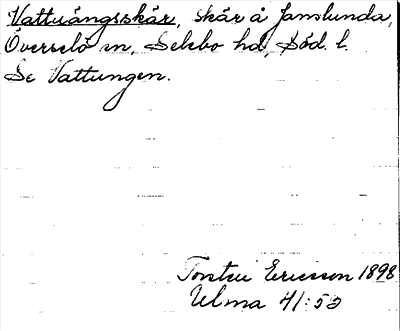 Vattuängsskär, skär å Janslunda,
Överselö sn, Selebo hd, Söd. l.
Se Vattungen.
Torsten Ericsson 1898
Ulma 41:53